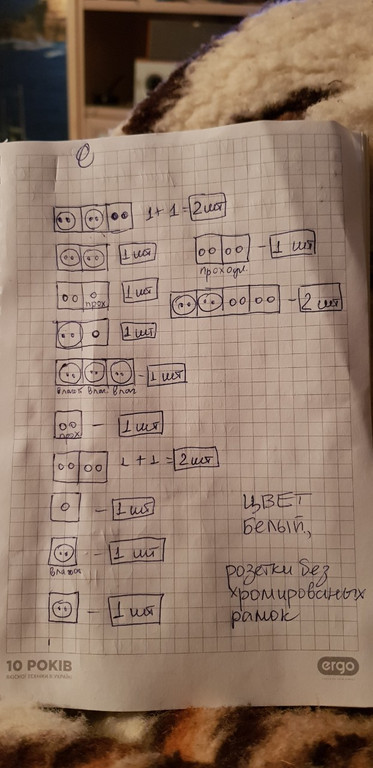 1 + 1 = 2 шт
1 шт
1 шт
проходн.
прох
1 шт
2 шт
1 шт
влаг влаг влаг
1 шт
прох
1 шт
1 + 1 = 2 шт
1 шт
1 шт
влаж
1 шт
ЦВЕТ
белый,
розетки без
хромированых
рамок
10 РОКІВ
ergo